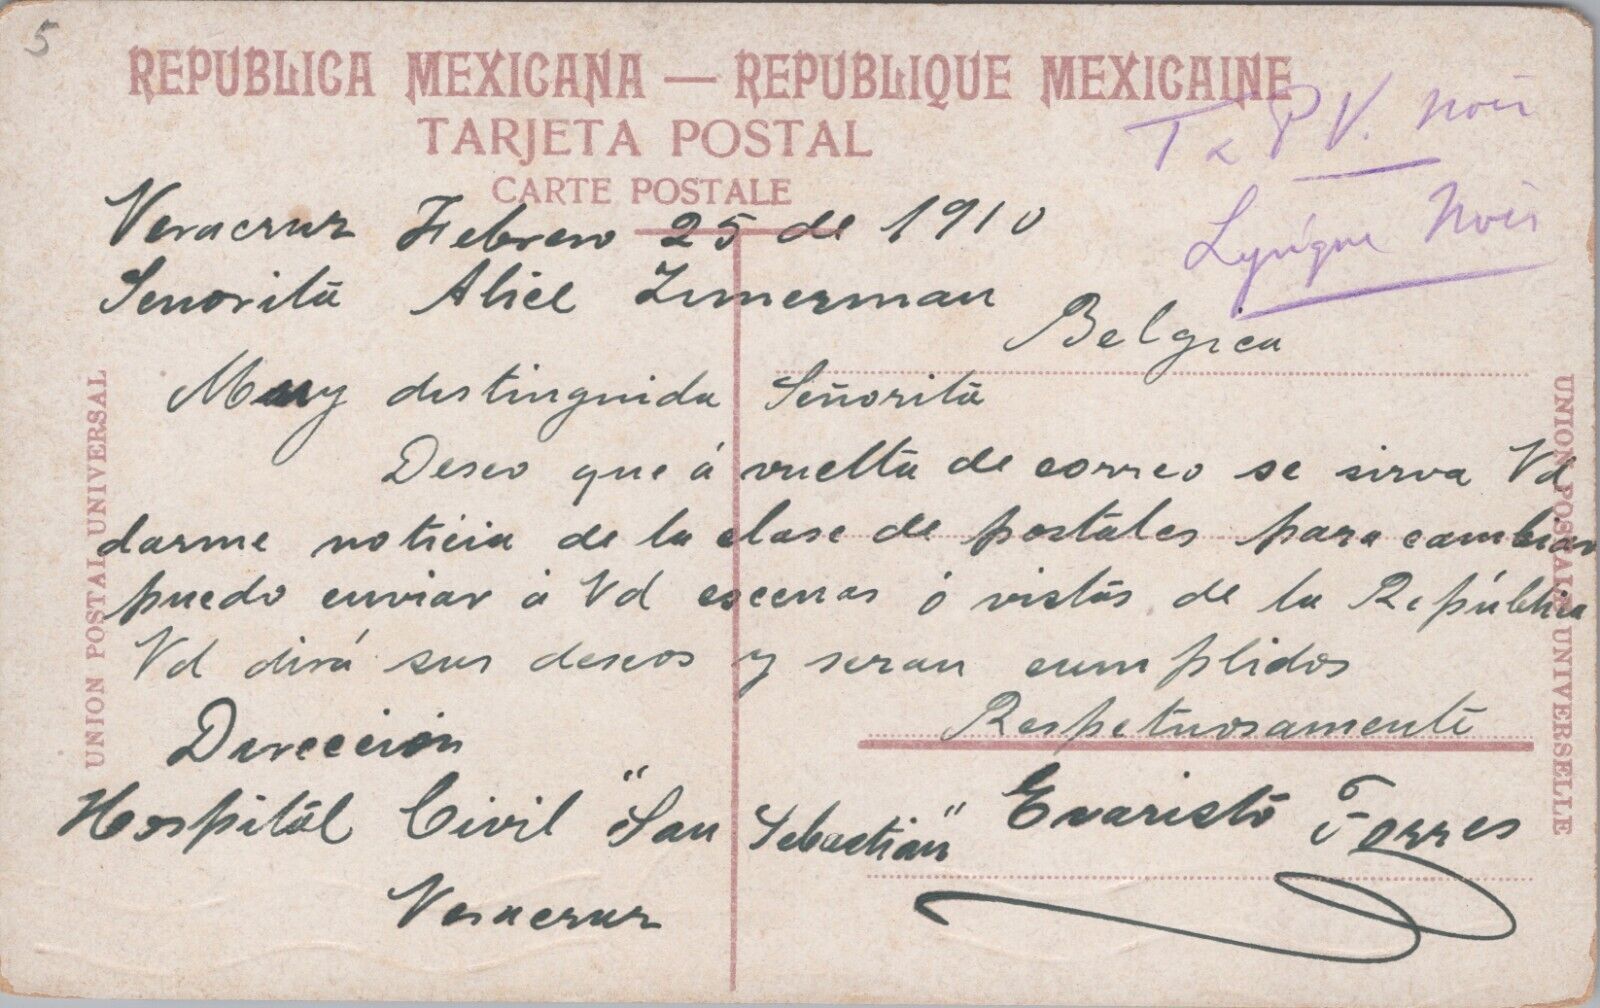 5
REPUBLICA MEXICANA — REPUBLIQUE MEXICAINE
TARJETA POSTAL
CARTE POSTALE
V. Noir
Noir
Veracruz Febrero 25 de 1910
Senorita Alice Zimerman
Belgica
Muy distinguida Señorita
Deseo que á vuelta de correo se sirva Vd
darme noticia de la clase de postales para cambiar
puedo enviar á Vd escenas ó vistas de la República
Vd dirá sus deseos y seran cumplidos
Respetuosamente
Dirección
Hospital Civil "San Sebastian" Evaristo Torres
Veracruz
UNION POSTAL UNIVERSAL
UNION POSTALE UNIVERSELLE